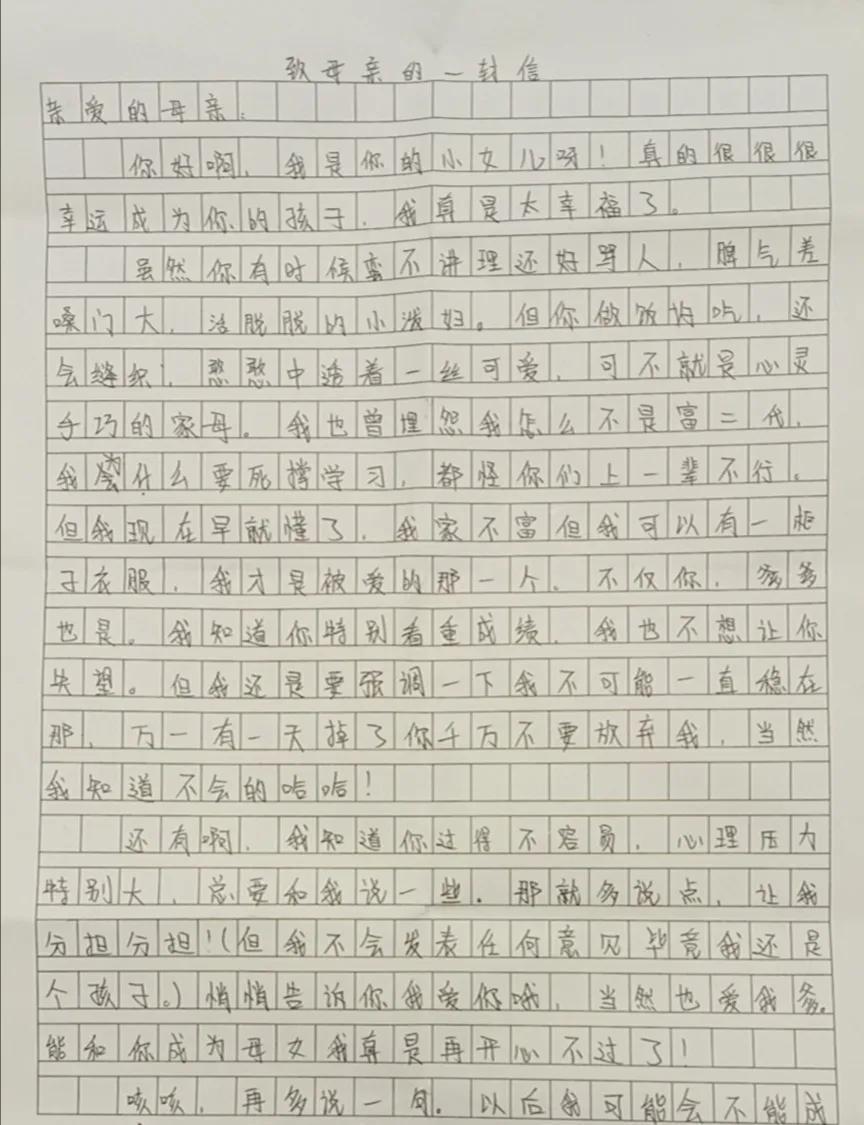 致母亲的一封信
亲爱的母亲:
你好啊,我是你的小女儿呀!真的很很很
幸运成为你的孩子,我真是太幸福了。
虽然你有时候蛮不讲理还好骂人,脾气差
嗓门大,活脱脱的小泼妇。但你做饭好吃,还
会缝织,憨憨中透着一丝可爱,可不就是心灵
手巧的家母。我也曾埋怨我怎么不是富二代,
我为什么要死撑学习,都怪你们上一辈不行。
但我现在早就懂了,我家不富但我可以有一柜
子衣服,我才是被爱的那一个。不仅你,爹爹
也是。我知道你特别看重成绩,我也不想让你
失望。但我还是要强调一下我不可能一直稳在
那,万一有一天掉了你千万不要放弃我,当然
我知道不会的哈哈!
还有啊,我知道你过得不容易,心理压力
特别大,总要和我说一些.那就多说点,让我
分担分担!(但我不会发表任何意见毕竟我还是
个孩子。)悄悄告诉你我爱你哦,当然也爱我爹。
能和你成为母女我真是再开心不过了!
咳咳,再多说一句。以后我可能会不能成